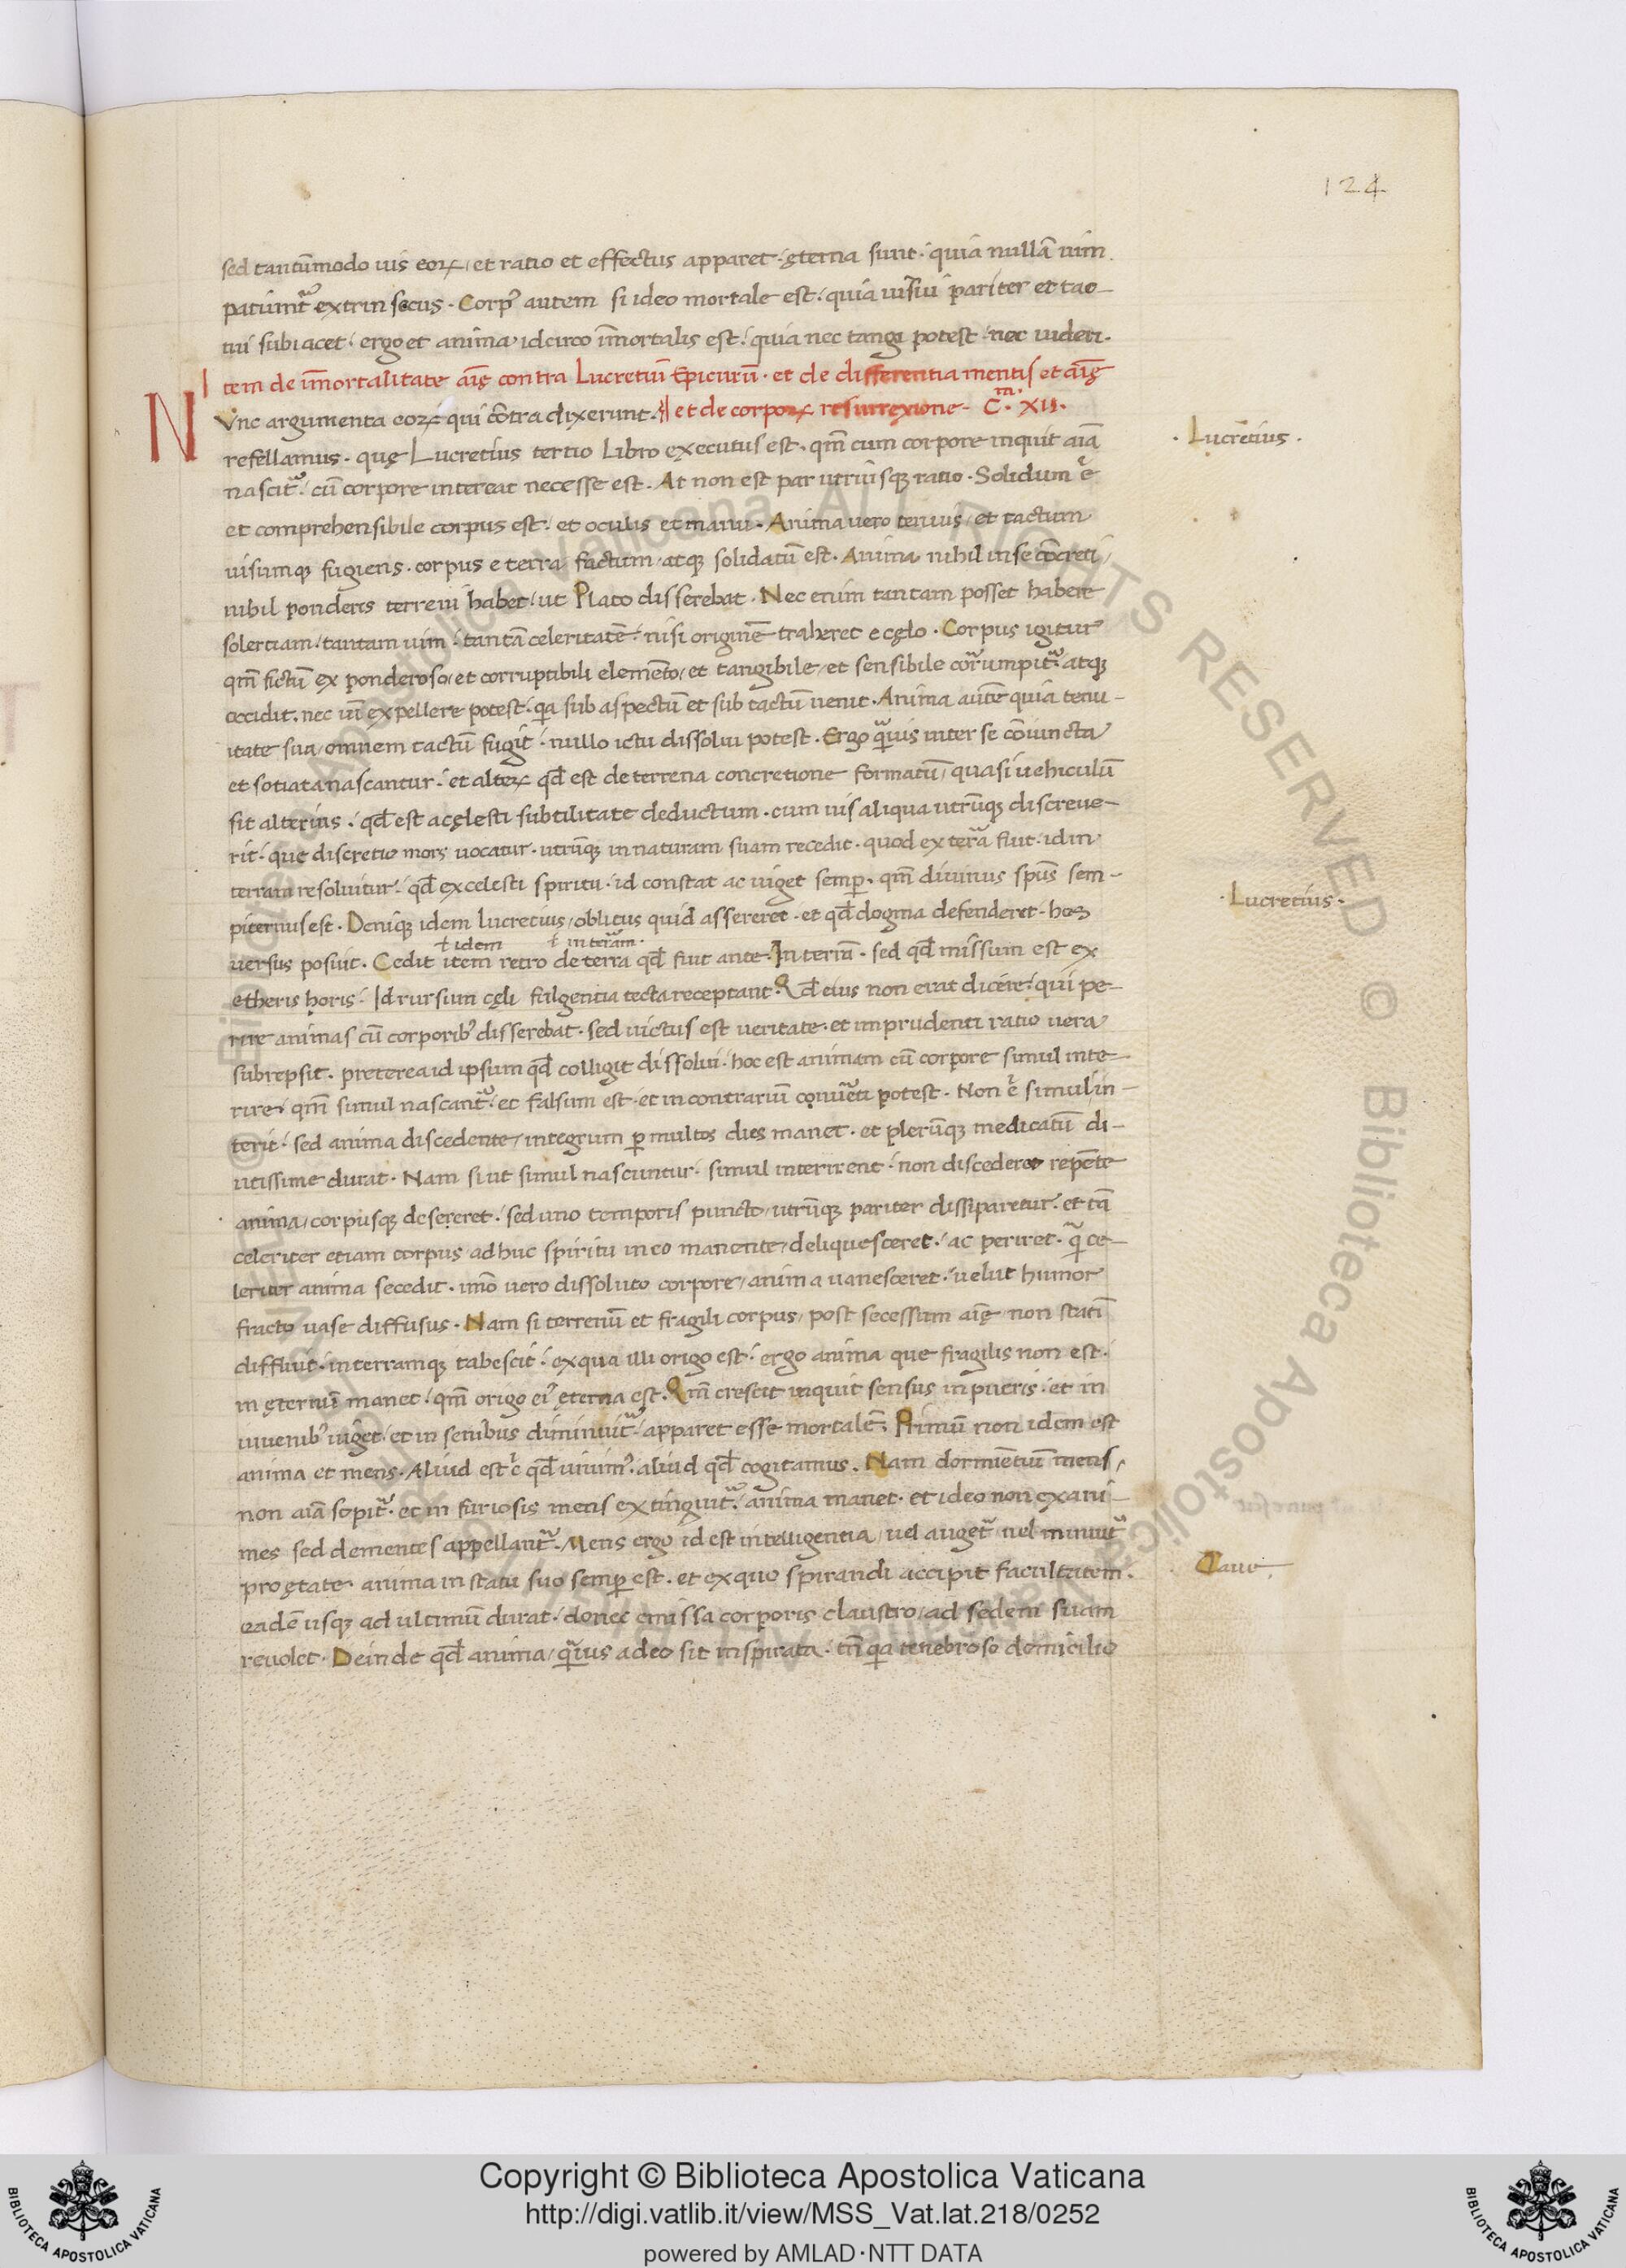 124
sed tantūmodo uis eoꝝ, et ratio et effectus apparet. ęterna sunt. quia nullā uim
patiunt᷑ extrinsecus. Corpꝰ autem si ideo mortale est. quia uisui pariter et tac-
tui subiacet. ergo et anima idcirco īmortalis est. quia nec tangi potest nec uideri.
Item de īmortalitate aīę contra Lucretiū Epicurū. et de differentia mentis et aīę
Nvnc argumenta eoꝝ qui cōtra dixerunt. et de corpoꝝ resurrexione. C.m XII.
refellamus. quę Lucretius tertio Libro executus est. qm̄ cum corpore inquit aīa
nascit᷑. cū corpore intereat necesse est. At non est par utriusqꝫ ratio. Solidum .n.
et comprehensibile corpus est. et oculis et manu. Anima uero tenuis, et tactum
uisumqꝫ fugiens. corpus e terra factum, atqꝫ solidatū est. Anima nihil in se cōcreti,
nihil ponderis terreni habet, ut Plato disserebat. Nec enim tantam posset habere
solertiam, tantam uim, tantā celeritatē, nisi originē traheret e cęlo. Corpus igitur
qm̄ fictū ex ponderoso, et corruptibili elemēto, et tangibile, et sensibile corrumpit᷑. atqꝫ
occidit. nec uī expellere potest. qa sub aspectū et sub tactū uenit. Anima autē quia tenu-
itate sua, omnem tactū fugit. nullo ictu dissolui potest. Ergo q̃uis inter se cōiuncta
et sotiata nascantur. et alteꝝ qd̄ est de terrena concretione formatū, quasi uehiculū
sit alterius. qd̄ est a cęlesti subtilitate deductum. cum uis aliqua utrūqꝫ discreue-
rit. quę discretio mors uocatur. utrūqꝫ in naturam suam recedit. quod ex terra fuit. id in
terram resoluitur. qd̄ ex celesti spiritu. id constat ac uiget semp. qm̄ diuinus sp̄us sem-
piternus est. Deniqꝫ idem lucretius, oblitus quid assereret. et qd̄ dogma defenderet. hos
ł idem ł in terram.
uersus posuit. Cedit item retro de terra qd̄ fuit ante. In terrā. sed qd̄ missum est ex
etheris horis. Id rursum cęli fulgentia tecta receptant. Qd̄ eius non erat dicere. qui pe-
rire animas cū corporibꝰ disserebat. sed uictus est ueritate. et imprudenti ratio uera
subrepsit. preterea id ipsum qd̄ colligit dissolui. hoc est animam cū corpore simul inte-
rire, qm̄ simul nascant᷑. et falsum est. et in contrariū conuerti potest. Non .n. simul in-
terit. sed anima discedente, integrum p multos dies manet. et plerūqꝫ medicatū di-
utissime durat. Nam si ut simul nascuntur. simul interirent. non discederet repēte
anima, corpusqꝫ desereret. sed uno temporis puncto, utrūqꝫ pariter dissiparetur. et tā
celeriter etiam corpus adhuc spiritu in eo manente, deliquesceret. ac periret. q̃ ce-
leriter anima secedit. imo uero dissoluto corpore, anima uanesceret. uelut humor
fracto uase diffusus. Nam si terrenū et fragili corpus, post secessum aīę, non statī
diffluit. in terramqꝫ tabescit. ex qua illi origo est. ergo anima que fragilis non est.
in ęternū manet. qm̄ origo eiꝰ ęterna est. Qm̄ crescit inquit sensus in pueris. et in
iuuenibꝰ uiget. et in senibus diminuit᷑. apparet esse mortalē. Primū non idem est
anima et mens. Aliud est .n. qd̄ uiuimꝰ. aliud qd̄ cogitamus. Nam dormiētiū mens,
non aīa sopit᷑. et in furiosis mens extinguit᷑. anima manet. et ideo non exani-
mes sed dementes appellant᷑. Mens ergo id est intelligentia, uel auget᷑ uel minuit᷑
pro ętate. anima in statu suo semp est. et ex quo spirandi accipit facultatem.
eadē usqꝫ ad ultimū durat. donec emissa corporis claustro, ad sedem suam
reuolet. Deinde qd̄ anima, q̃uis a deo sit inspirata. tn̄ qa tenebroso domicilio
. Lucretius .
. Lucretius .
Caue.
Copyright © Biblioteca Apostolica Vaticana
http://digi.vatlib.it/view/MSS_Vat.lat.218/0252
powered by AMLAD·NTT DATA
BIBLIOTECA APOSTOLICA VATICANA
BIBLIOTECA APOSTOLICA VATICANA